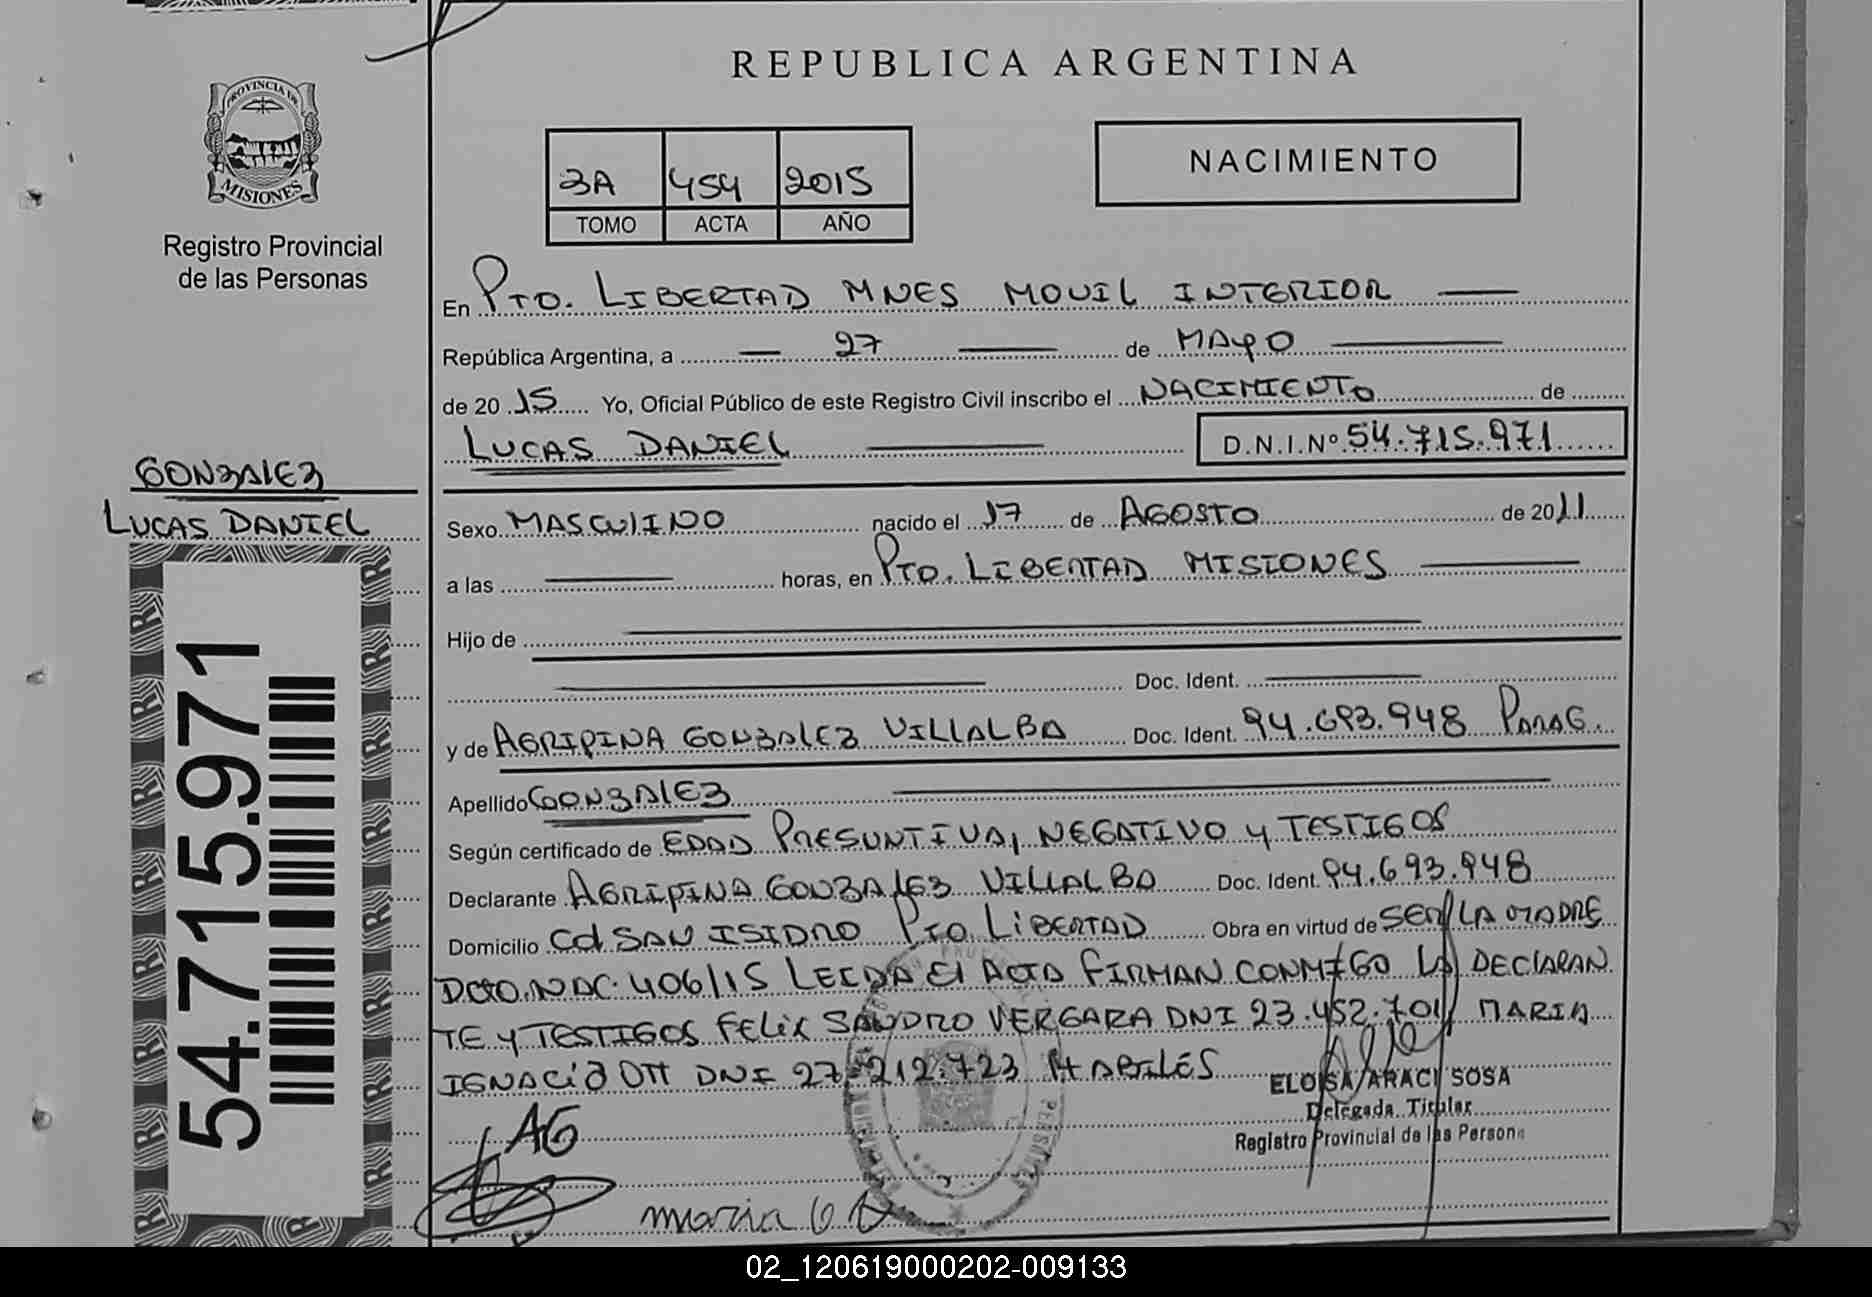 REPUBLICA ARGENTINA
PROVINCIA DE
MISIONES
Registro Provincial
de las Personas
3A 454 2015
TOMO ACTA AÑO
NACIMIENTO
En PTO. LIBERTAD MNES MOVIL INTERIOR
República Argentina, a 27 de MAYO
de 20 15 Yo, Oficial Público de este Registro Civil inscribo el NACIMIENTO de
LUCAS DANIEL D.N.I.Nº 54.715.971
GONZALEZ
LUCAS DANIEL
54.715.971
Sexo MASCULINO nacido el 17 de AGOSTO de 2011
a las horas, en PTO. LIBERTAD MISIONES
Hijo de
Doc. Ident.
y de AGRIPINA GONZALEZ VILLALBA Doc. Ident. 94.693.948 PARAG.
Apellido GONZALEZ
Según certificado de EDAD PRESUNTIVA, NEGATIVO y TESTIGOS
Declarante AGRIPINA GONZALEZ VILLALBA Doc. Ident. 94.693.948
Domicilio Cd SAN ISIDRO PTO. LIBERTAD Obra en virtud de SER LA MADRE
DCTO. NAC. 406/15 LEIDA El ACTA FIRMAN CONMIGO LA DECLARAN
TE y TESTIGOS FELIX SANDRO VERGARA DNI 23.452.701 MARIA
IGNACIA OTT DNI 27.212.723 HABILES
ELOISA ARACI SOSA
Delegada Titular
Registro Provincial de las Persona
AG
maria
02_120619000202-009133